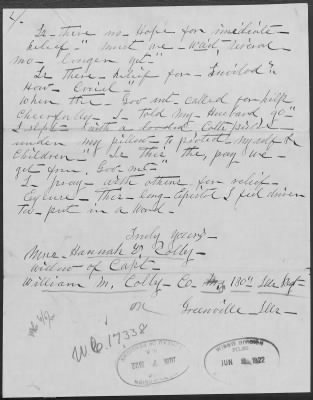 4.
Is there no Hope for imediate
relief - " must we wait several
mo - longer yet "
Is there - relief for - Invilod "
How - Cruel "
When the - Gov mt - called for help
Cheerfully - I - told my - Husband go "
I slept - with a loaded Colts pistol
under my pillow - to protect myself &
Children - Is this the, pay we -
get from, Gov mt - "
I - pray - with others for relief -
Excuse - this - long Epistol I feel driven
to - put in a word -
Truly Yours -
Mrs - Hannah
Widow of Capt -
William M. Colby - Co - 130th Ills Regt -
Greenville Ills -
WC 17338
JUN 1922